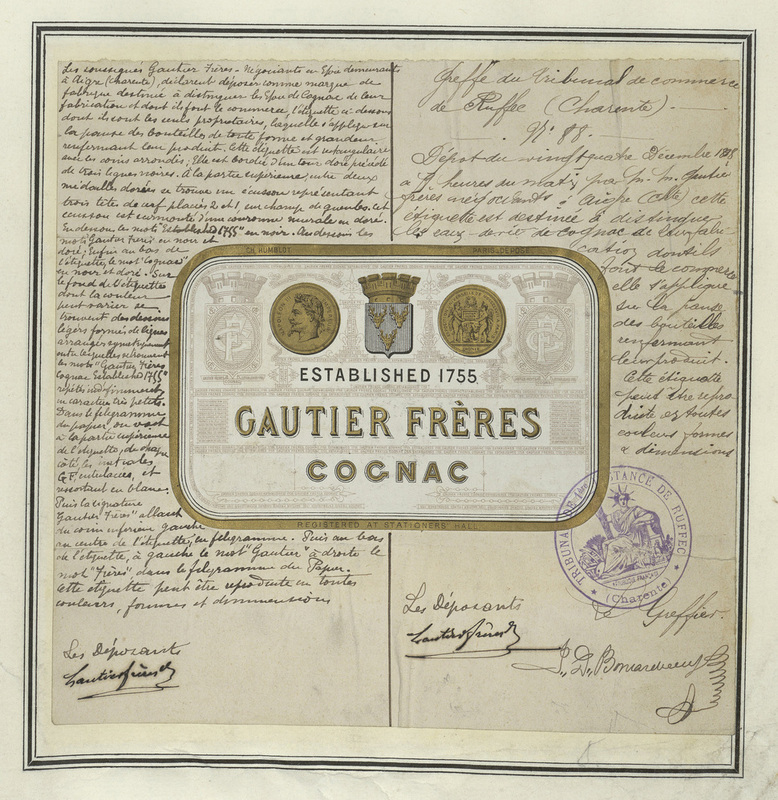 Les soussignés Gautier Frères - Négociants en Spin demeurants
à Aigre (Charente), déclarent déposer comme marque de
fabrique destinée à distinguer les Spin de Cognac de leur
fabrication et dont ils font le commerce, l'étiquette ci dessous
dont ils sont les seuls propriétaires, laquelle s'applique sur
la panse des bouteilles de toute forme et grandeur
renfermant leur produit. Cette étiquette est rectangulaire
sur les coins arrondis; Elle est bordée d'un tour doré précédé
de trois lignes noires. A la partie supérieure, entre deux
médailles dorées se trouve un écusson représentant
trois têtes de cerf, placés 2 et 1, sur champ de gueules, cet
écusson est surmonté d'une couronne murale en doré.
En dessous les mots Established 1755" en noir. Au dessous les
mots Gautier Frères en noir et
doré; Enfin au bas de
l'étiquette, le mot "Cognac"
en noir et doré. Sur
le fond de l'étiquette
dont la couleur
peut varier se
trouvent des dessins
légers formés de lignes
arrangées symétriquement
entre lesquelles se trouvent
les mots "Gautier Frères
Cognac Established 1755"
répétés indéfiniment
en caractères très petits.
Dans le filigramme
du papier on voit
à la partie supérieure
de l'étiquette, de chaque
côté, les initiales
G F, entrelacées, et
ressortant en blanc.
Puis la signature
"Gautier Frères" allant
du coin inférieur gauche
au centre de l'étiquette, en filigramme. Puis au bas
de l'étiquette, à gauche le mot "Gautier" à droite le
mot "Frères" dans le filigramme du Papier.
Cette étiquette peut être reproduite en toutes
couleurs, formes et dimensions
Les Déposants
Gautier frères
Greffe du tribunal de commerce
de Ruffec (Charente).
N: 88.
Dépôt du vingt quatre Décembre 1878
à 9 heures du matin par M. M. Gautier
frères négociants à Aigre (Chte) cette
étiquette est destinée à distinguer
les eaux-de-vie de Cognac de leur fabri-
cation dont ils
font le commerce
elle s'applique
sur la panse
des bouteilles
renfermant
leur produit.
Cette étiquette
peut être repro-
duite en toutes
couleurs formes
& dimensions
Les Déposants
Gautier frères
Le Greffier.
CH. HUMBLOT
PARIS. DÉPOSÉ
ESTABLISHED 1755
GAUTIER FRÈRES
COGNAC
REGISTERED AT STATIONERS' HALL
INSTANCE DE RUFFEC
TRIBUNAL
(Charente)